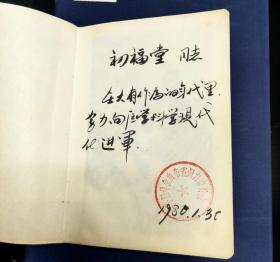 初福堂 同志
在大有作为的年代里
努力向医学科学现代
化进軍.
1980.1.30